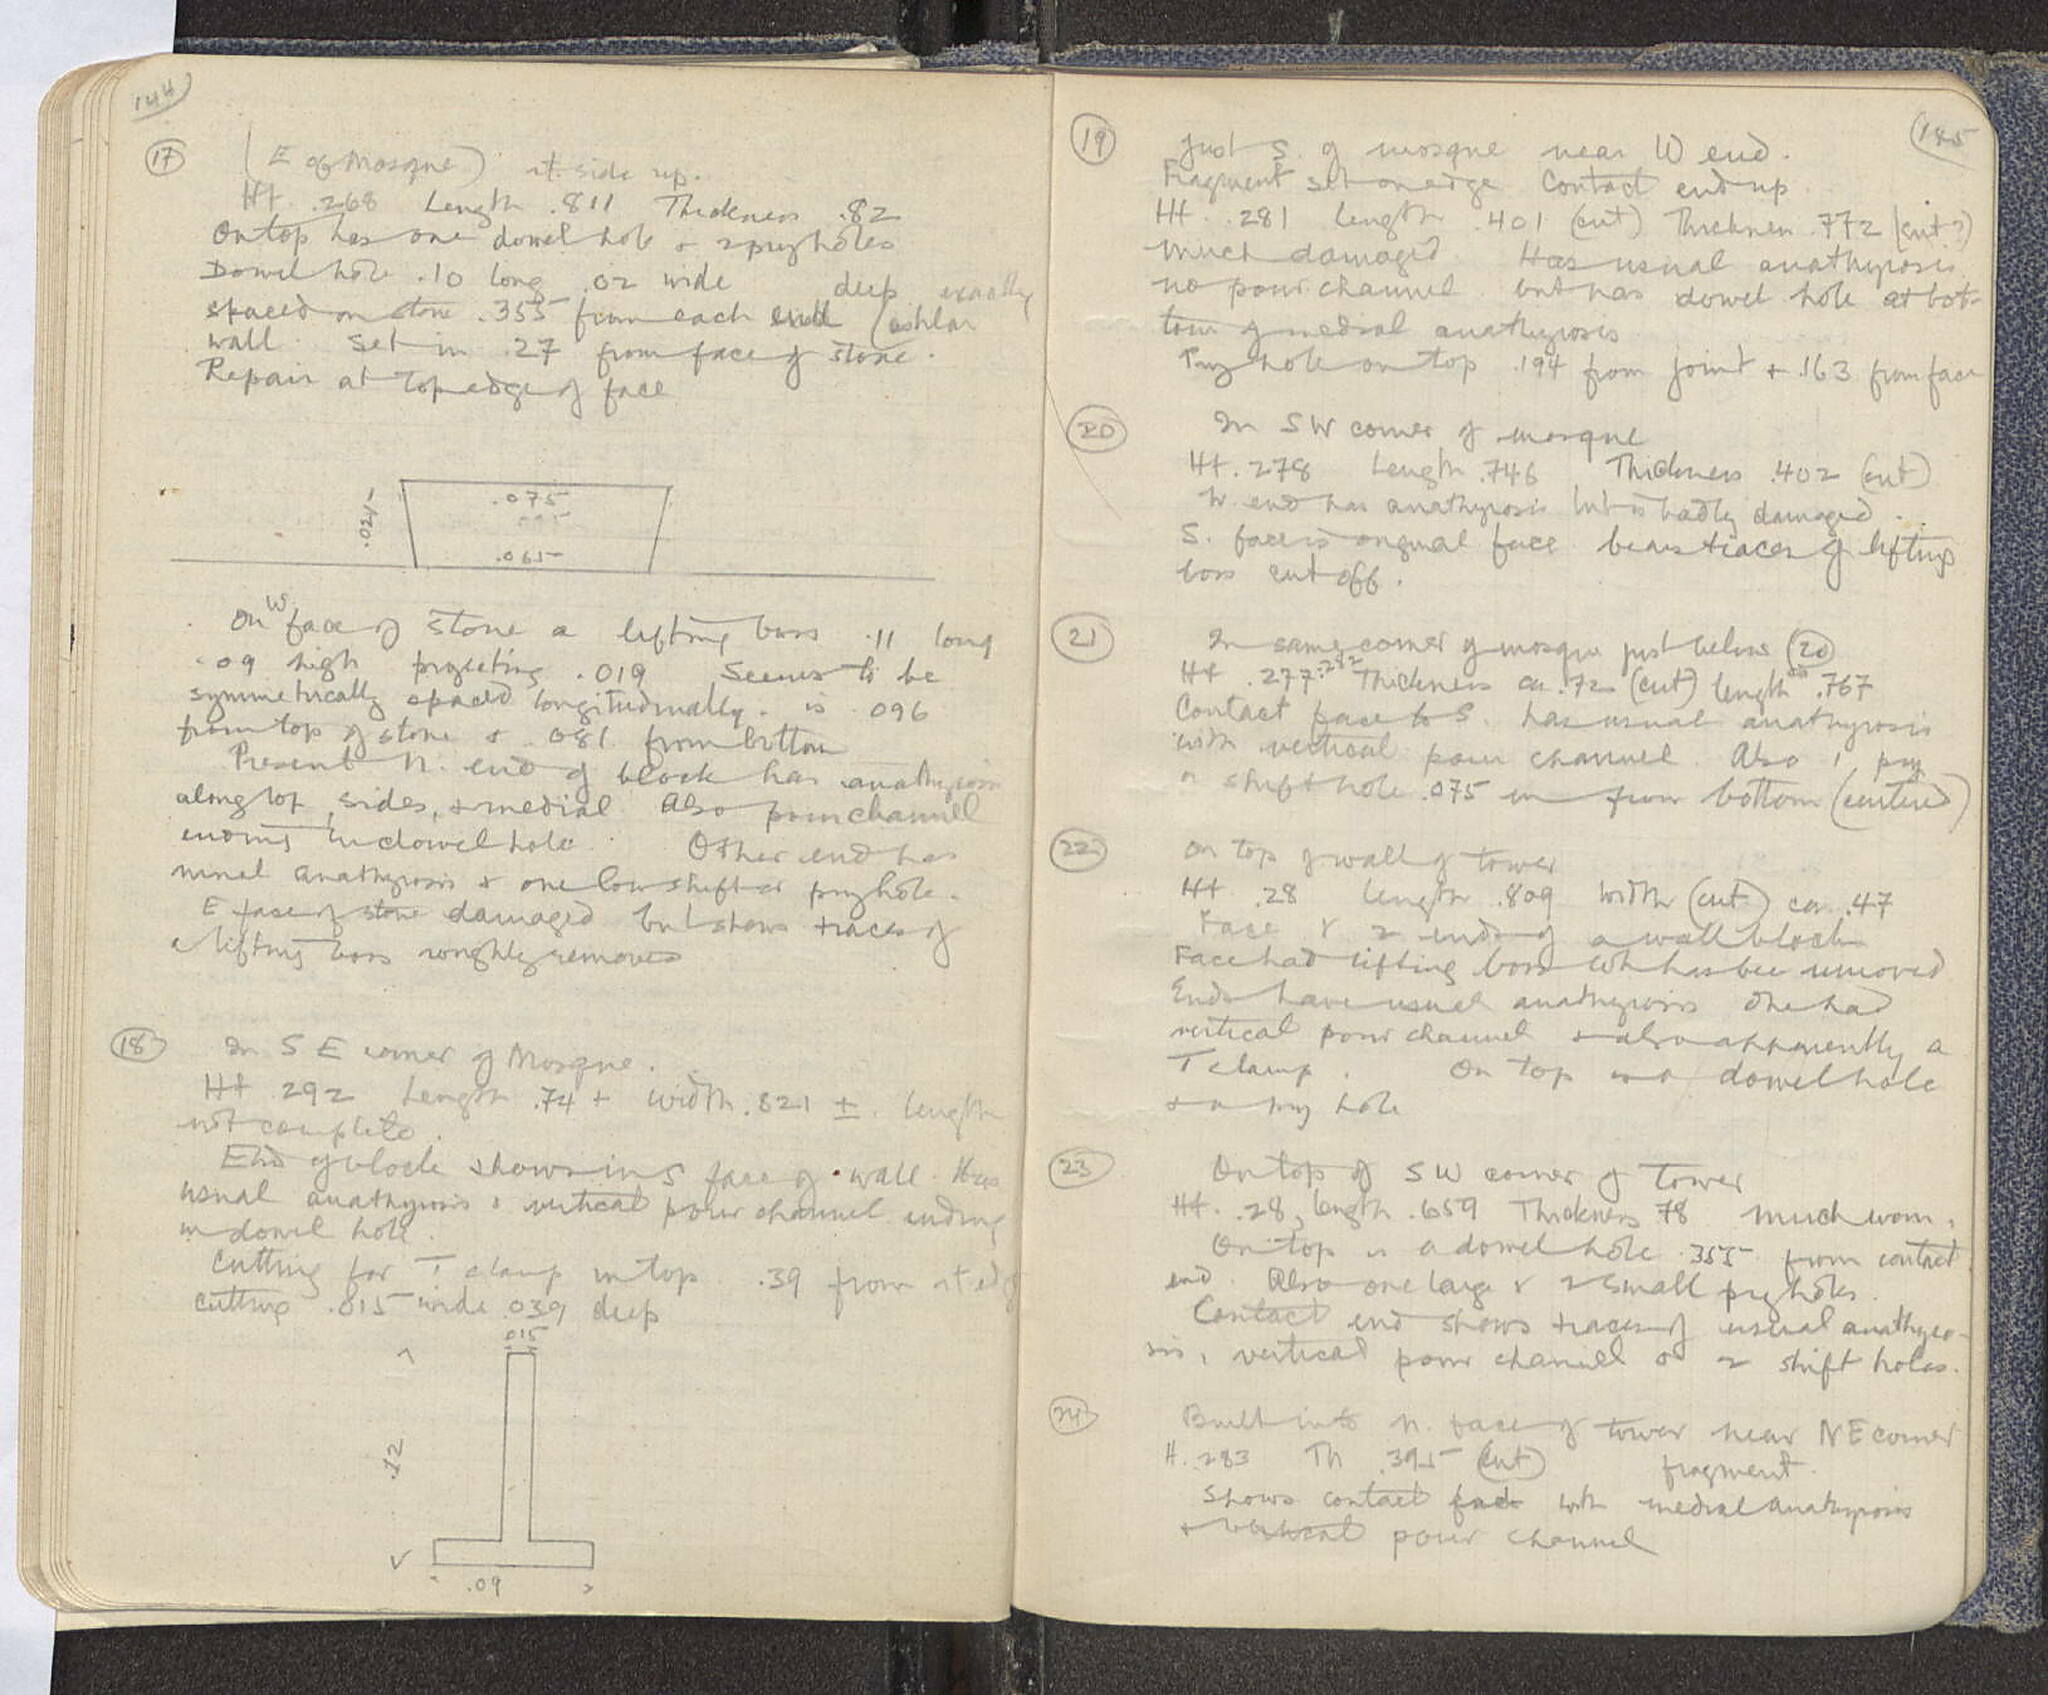 144
(17) (E of Mosque) rt. side up.
Ht. .268 Length .811 Thickness .82
On top has one dowel hole & 2 pry holes
Dowel hole .10 long .02 wide deep exactly
spaced on stone .355 from each end (ashlar
wall. Set in .27 from face of stone.
Repair at top edge of face
.075
.024
.065
On W face of stone a lifting boss .11 long
.09 high projecting .019 Seems to be
symmetrically spaced longitudinally. is .096
from top of stone & .081 from bottom
Present N. end of block has anathyrosis
along top, sides, & medial Also pour channel
ending in dowel hole. Other end has
usual anathyrosis & one low shift or pry hole.
E face of stone damaged but shows traces of
a lifting boss roughly removed
(18) In S E corner of Mosque.
Ht .292 Length .74 + width .821 ±. length
not complete.
End of block shows in S face of wall. Has
usual anathyrosis & vertical pour channel ending
in dowel hole.
Cutting for T clamp in top .39 from rt edge
cutting .015 wide .039 deep
.015
.12
.09
145
(19) Just S. of mosque near W end.
Fragment set on edge Contact end up
Ht. .281 length .401 (cut) Thickness .772 (cut?)
Much damaged. Has usual anathyrosis
no pour channel but has dowel hole at bot-
tom of medial anathyrosis
Pry hole on top .194 from joint & .163 from face
(20) In SW corner of mosque
Ht. .278 Length .746 Thickness .402 (cut)
W. end has anathyrosis but is badly damaged.
S. face is original face bears traces of lifting
boss cut off.
(21) In same corner of mosque just below (20)
Ht .277-.282 Thickness ca .72 (cut) length .767
Contact face to S. has usual anathyrosis
with vertical pour channel. Also 1 pry
or shift hole .075 in from bottom (centered)
(22) On top of wall of tower
Ht .28 length .809 width (cut) ca .47
Face & 2 ends of a wall block
Face had lifting boss wh has bee removed
Ends have usual anathyrosis One had
vertical pour channel & also apparently a
T clamp. On top is a dowel hole
& a pry hole
(23) On top of SW corner of Tower
Ht. .28, length .659 Thickness 78 much worn.
On top is a dowel hole .355 from contact
end. Also one large & 2 small pry holes.
Contact end shows traces of usual anathyro-
sis, vertical pour channel & 2 shift holes.
(24) Built into N. face of tower near NE corner
H. .283 Th .395 (cut) fragment.
Shows contact face with medial anathyrosis
& vertical pour channel